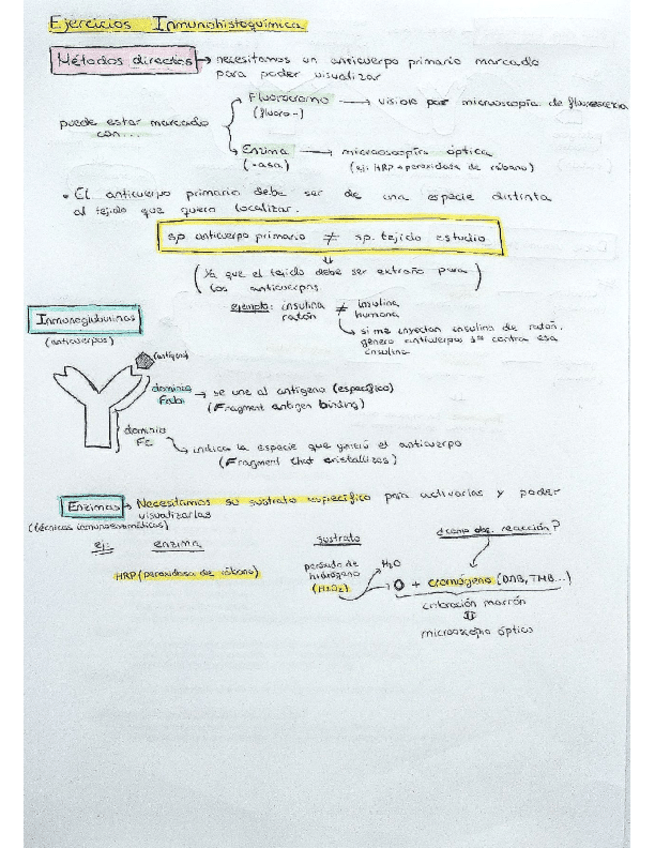 Ejercicios Inmunohistoquímica
Métodos directos → necesitamos un anticuerpo primario marcado
para poder visualizar
puede estar marcado
con...
Fluorocromo → visible por microscopía de fluorescencia
(fluoro-)
Enzima → microscopía óptica
(-asa) (ej: HRP → peroxidasa de rábano)
• El anticuerpo primario debe ser de una especie distinta
al tejido que quiero localizar.
sp. anticuerpo primario ≠ sp. tejido estudio
⇓
(Ya que el tejido debe ser extraño para
los anticuerpos)
ejemplo: insulina ≠ insulina
ratón humana
↳ si me inyectan insulina de ratón,
genero anticuerpos contra esa
insulina
Inmunoglobulinas
(anticuerpos)
(antígeno)
dominio → se une al antígeno (específico)
Fab (Fragment antigen binding)
dominio
Fc ↳ indica la especie que generó el anticuerpo
(Fragment that cristallizes)
Enzimas → Necesitamos su sustrato específico para activarlas y poder
visualizarlas
(técnicas inmunoenzimáticas)
ej: enzima sustrato ¿cómo obs. reacción?
HRP (peroxidasa de rábano) peróxido de
hidrógeno
(H₂O₂)
H₂O
O + cromógeno (DAB, TMB...)
coloración marrón
⇓
microscopio óptico